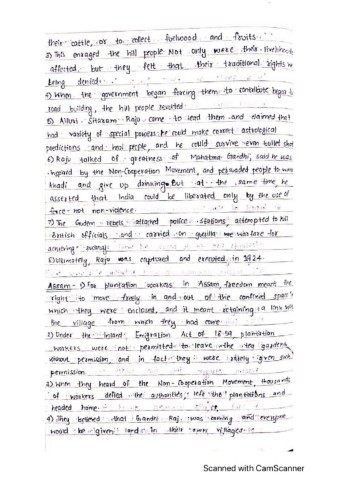 their cattle, or to collect fuelwood and fruits.
3) This enraged the hill people. Not only were their livelihoods
affected, but they felt that their traditional rights were
being denied.
4) When the government began forcing them to contribute begar to
road building, the hill people revolted.
5) Alluri Sitaram Raju came to lead them and claimed that
had variety of special powers: he could make correct astrological
predictions and heal people, and he could survive even bullet shot
6) Raju talked of greatness of Mahatma Gandhi, said he was
inspired by the Non-Cooperation Movement, and persuaded people to wear
khadi and give up drinking. But at the same time he
asserted that India could be liberated only by the use of
force not non-violence.
7) The Gudem rebels attacked police stations, attempted to kill
British officials and carried on guerilla warfare for
achieving swaraj.
8) Ultimately, Raju was captured and executed in 1924.
Assam - 1) For plantation workers in Assam, freedom meant the
right to move freely in and out of the confined space in
which they were enclosed, and it meant retaining a link with
the village from which they had come
2) Under the Inland Emigration Act of 1859, plantation
workers were not permitted to leave the tea gardens
without permission, and in fact they were rarely given such
permission
3) When they heard of the Non-Cooperation Movement, thousands
of workers defied the authorities, left the plantations and
headed home.
4) They believed that Gandhi Raj was coming and everyone
would be given land in their own villages.
Scanned with CamScanner